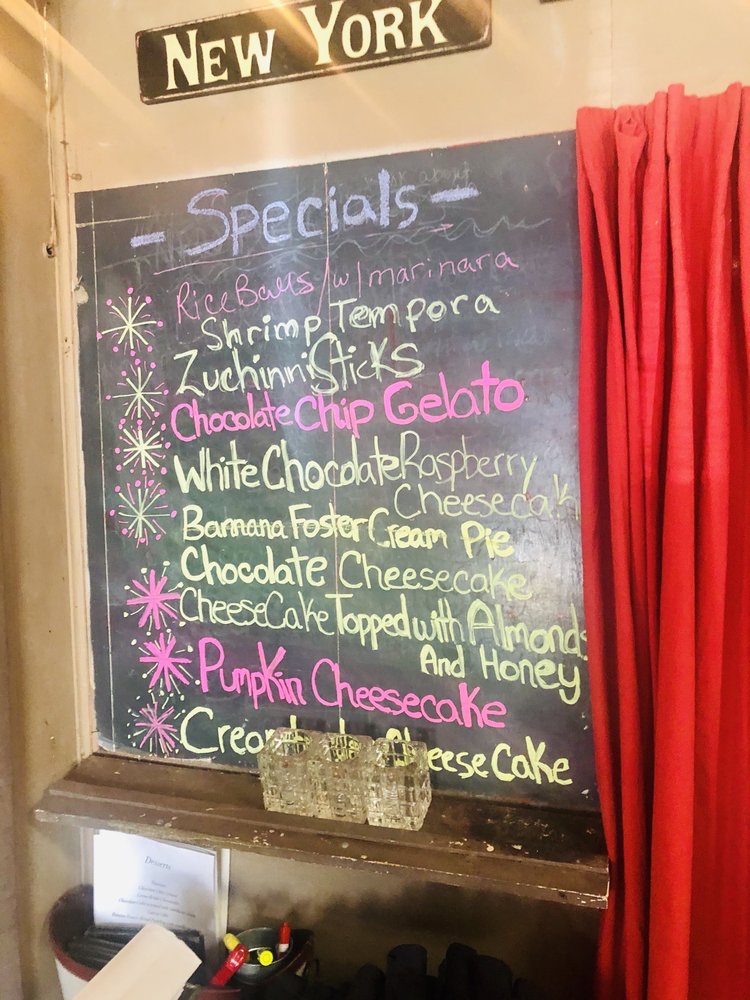 NEW YORK
- Specials -
Rice Balls / w/ marinara
Shrimp Tempora
Zuchinni Sticks
Chocolate Chip Gelato
White Chocolate Raspberry
Cheesecak
Bannana Foster Cream Pie
Chocolate Cheesecake
CheeseCake Topped with Almonds
And Honey
Pumpkin Cheesecake
Crea Cheese Cake
Desserts